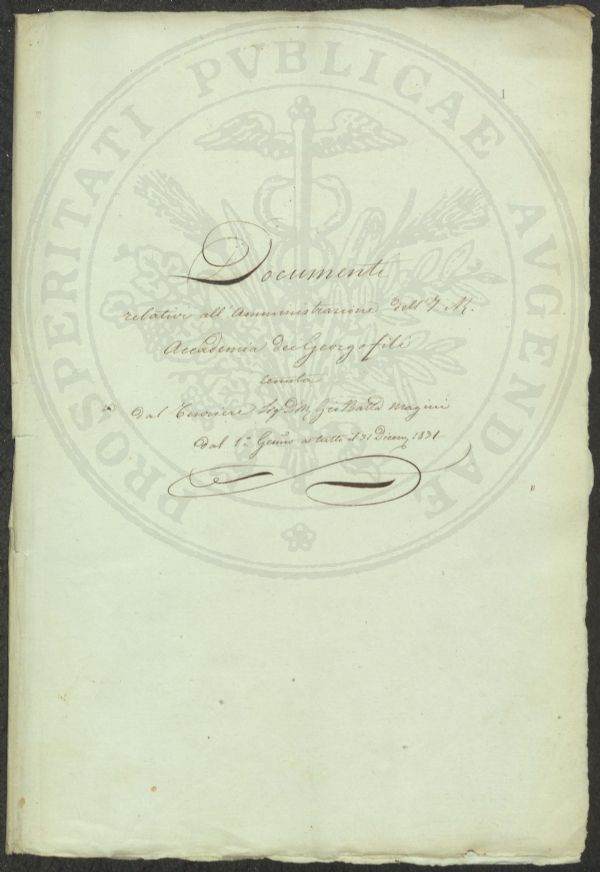 PROSPERITATI PVBLICAE AVGENDAE
1
Documenti
relativi all'Amministrazione dell'I. R.
Accademia dei Georgofili
tenuta
dal Tesoriere Sig. Gio Batta Magini
dal 1º Genno a tutto il 31 Dicem 1831